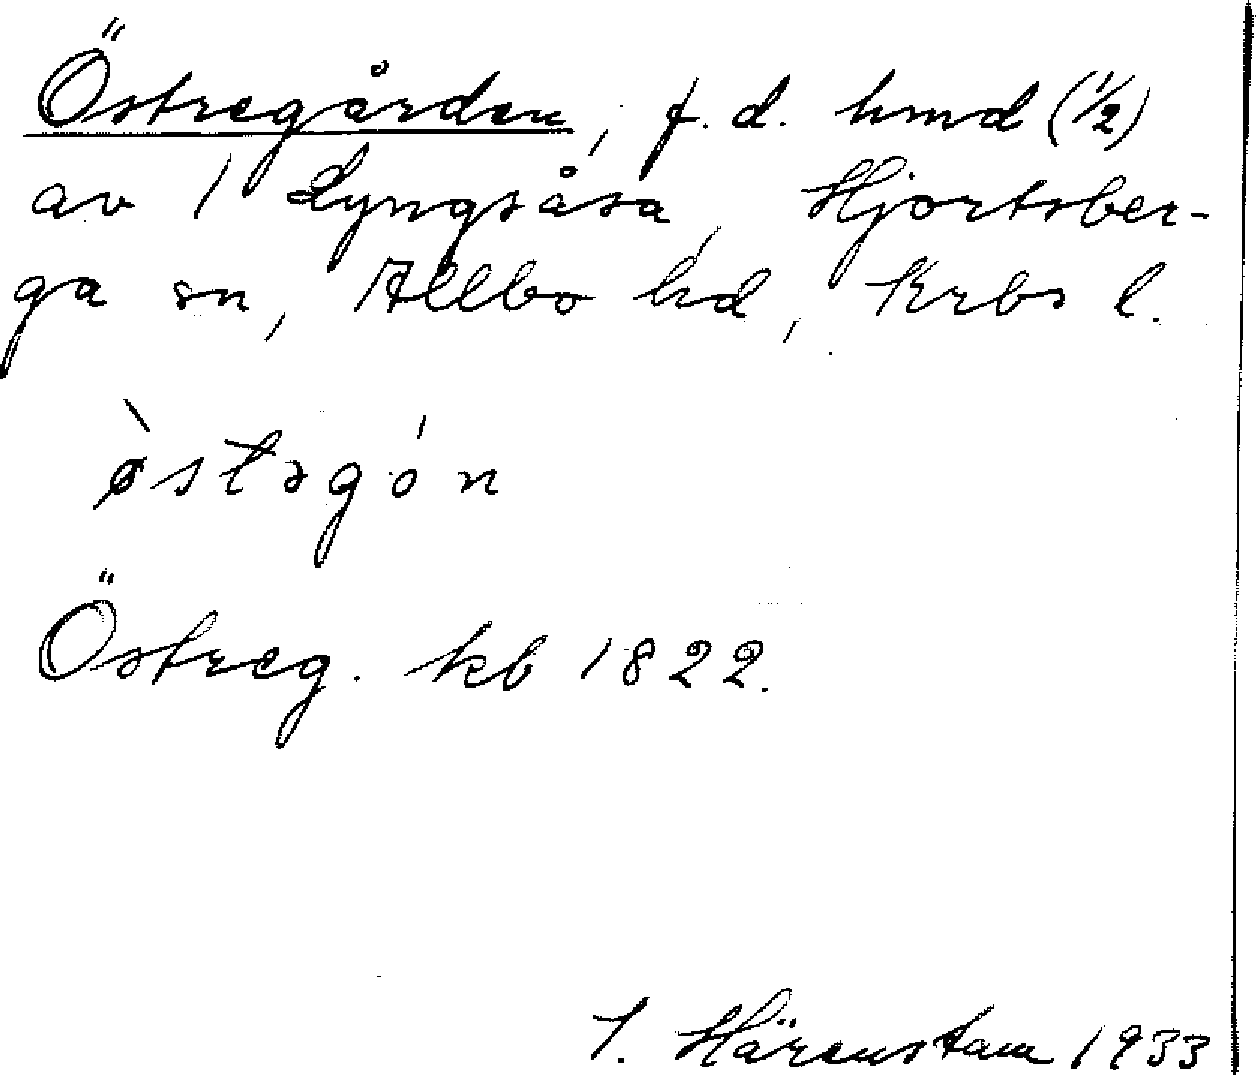 Östregården, f.d. hmd (1/2)
av 1 Lyngsåsa, Hjortsber-
ga sn, Allbo hd, Krbs l.
ø̀stəgón
Östreg. kb 1822.
I. Härenstam 1933